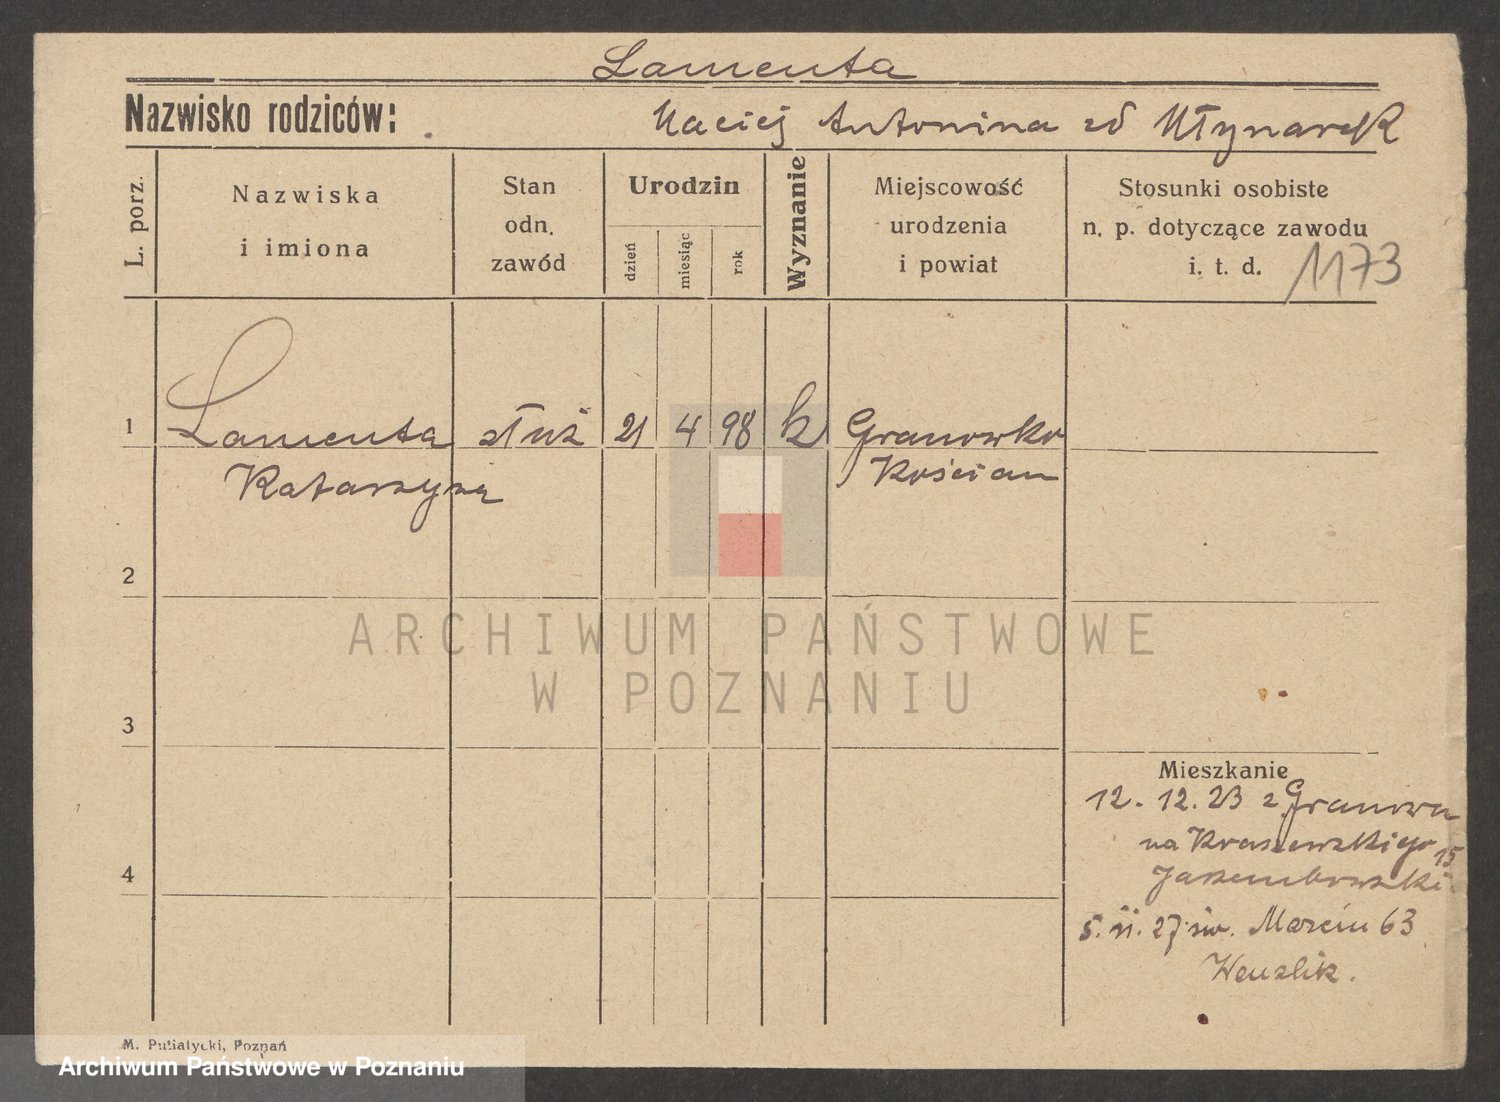 Lamenta
Nazwisko rodziców:
Maciej Antonina zd Młynarek
L. porz.
Nazwiska
i imiona
Stan
odn.
zawód
Urodzin
dzień
miesiąc
rok
Wyznanie
Miejscowość
urodzenia
i powiat
Stosunki osobiste
n. p. dotyczące zawodu
i. t. d.
1173
1
Lamenta służ 21 4 98 k Granowko
Katarzyna Kościan
2
ARCHIWUM PAŃSTWOWE
W POZNANIU
3
Mieszkanie
12. 12. 23 z Granowa
na Kraszewskiego 15
Jarzembowski
4
5. 11. 27 św. Marcin 63
Wenzlik.
M. Putiatycki, Poznań
Archiwum Państwowe w Poznaniu